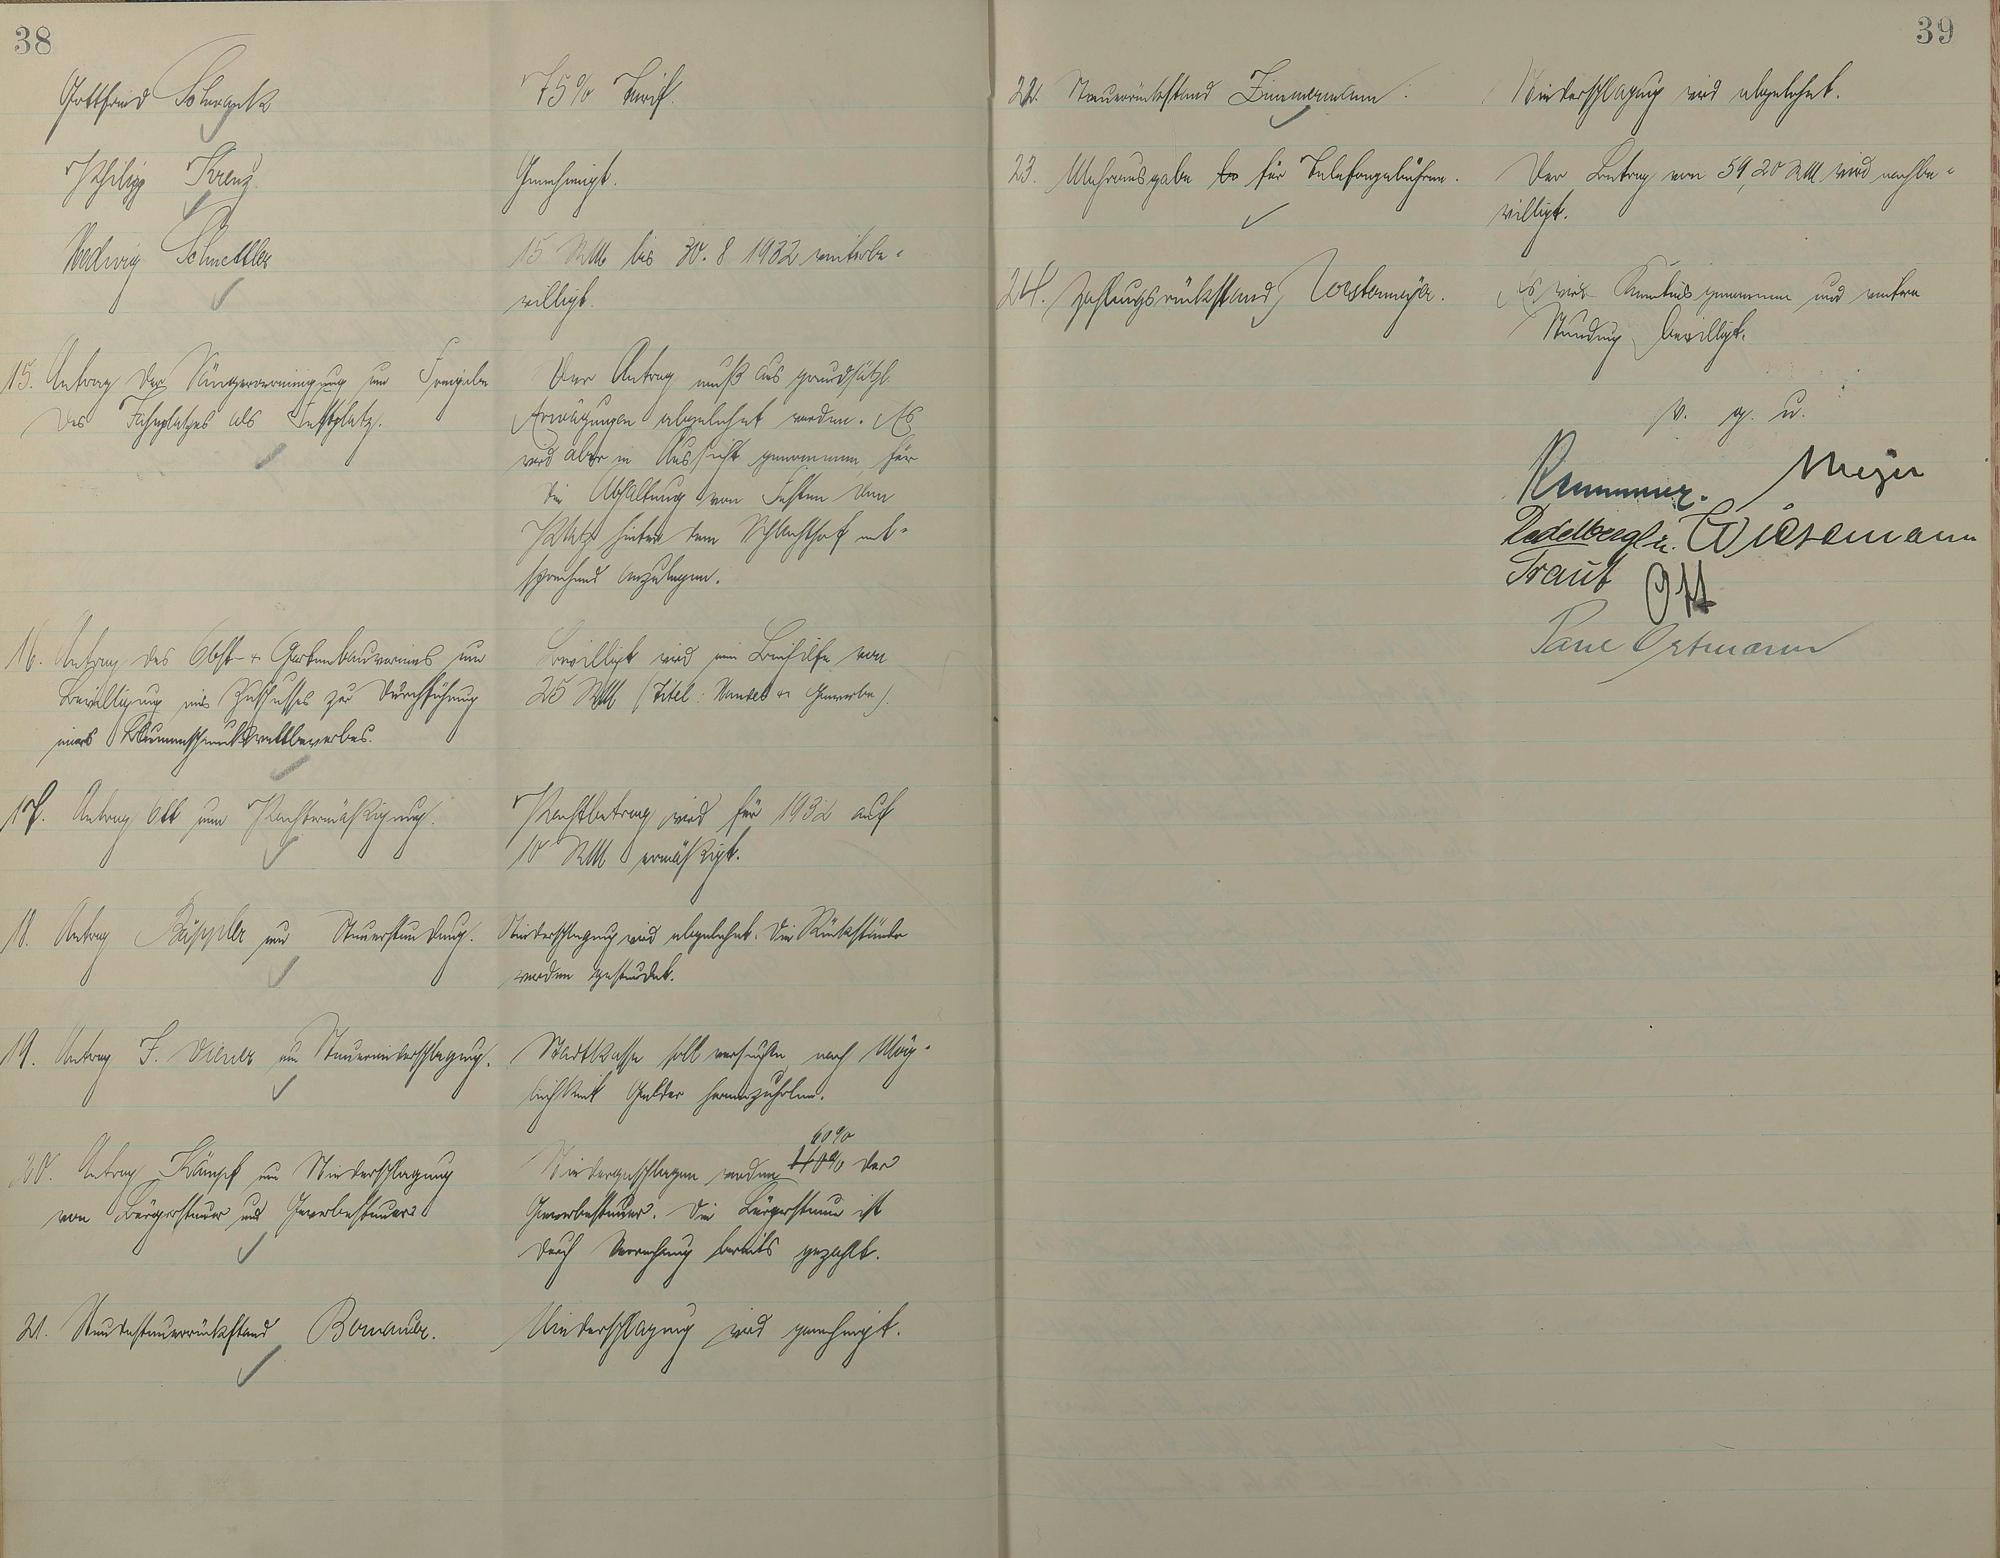 38
Gottfried Schwank
75% Tarif.
Philipp Kreuz
Genehmigt.
Hedwig Schmettler
15 RM bis 30. 8 1932 weiterbe-
willigt.
15. Antrag der Sängervereinigung um Freigabe
des Jahnplatzes als Festplatz.
Der Antrag muß aus grundsätzl.
Erwägungen abgelehnt werden. Es
wird aber in Aussicht genommen für
die Abhaltung von Festen den
Platz hinter dem Schlachthof ent-
sprechend anzulegen.
16. Antrag des Obst- u. Gartenbauvereines um
Bewilligung eines Zuschusses zur Durchführung
eines Blumenschmuckwettbewerbes.
Bewilligt wird eine Beihilfe von
25 RM (Titel: Handel u. Gewerbe).
17. Antrag Ott um Pachtermäßigung.
Pachtbetrag wird für 1932 auf
10 RM ermäßigt.
18. Antrag Käppler um Steuerstundung.
Niederschlagung wird abgelehnt. Die Rückstände
werden gestundet.
19. Antrag F. Diener um Steuerniederschlagung.
Stadtkasse soll versuchen nach Mög-
lichkeit Gelder hereinzuholen.
20. Antrag Kämpf um Niederschlagung
von Bürgersteuer und Gewerbesteuer.
60%
Niedergeschlagen werden 40% der
Gewerbesteuer. Die Bürgersteuer ist
durch Verrechnung bereits gezahlt.
21. Hundesteuerrückstand
Niederschlagung wird genehmigt.
39
22. Steuerrückstand Zimmermann.
Niederschlagung wird abgelehnt.
23. Mehrausgabe für Telefongebühren.
Der Betrag von 59,20 RM wird nachbe-
willigt.
24. Zahlungsrückstand Vorstemeyer.
Es wird Kenntnis genommen und weitere
Stundung bewilligt.
v. g. u.
Meyer
Wistemann
Traut Ott
Ostmann